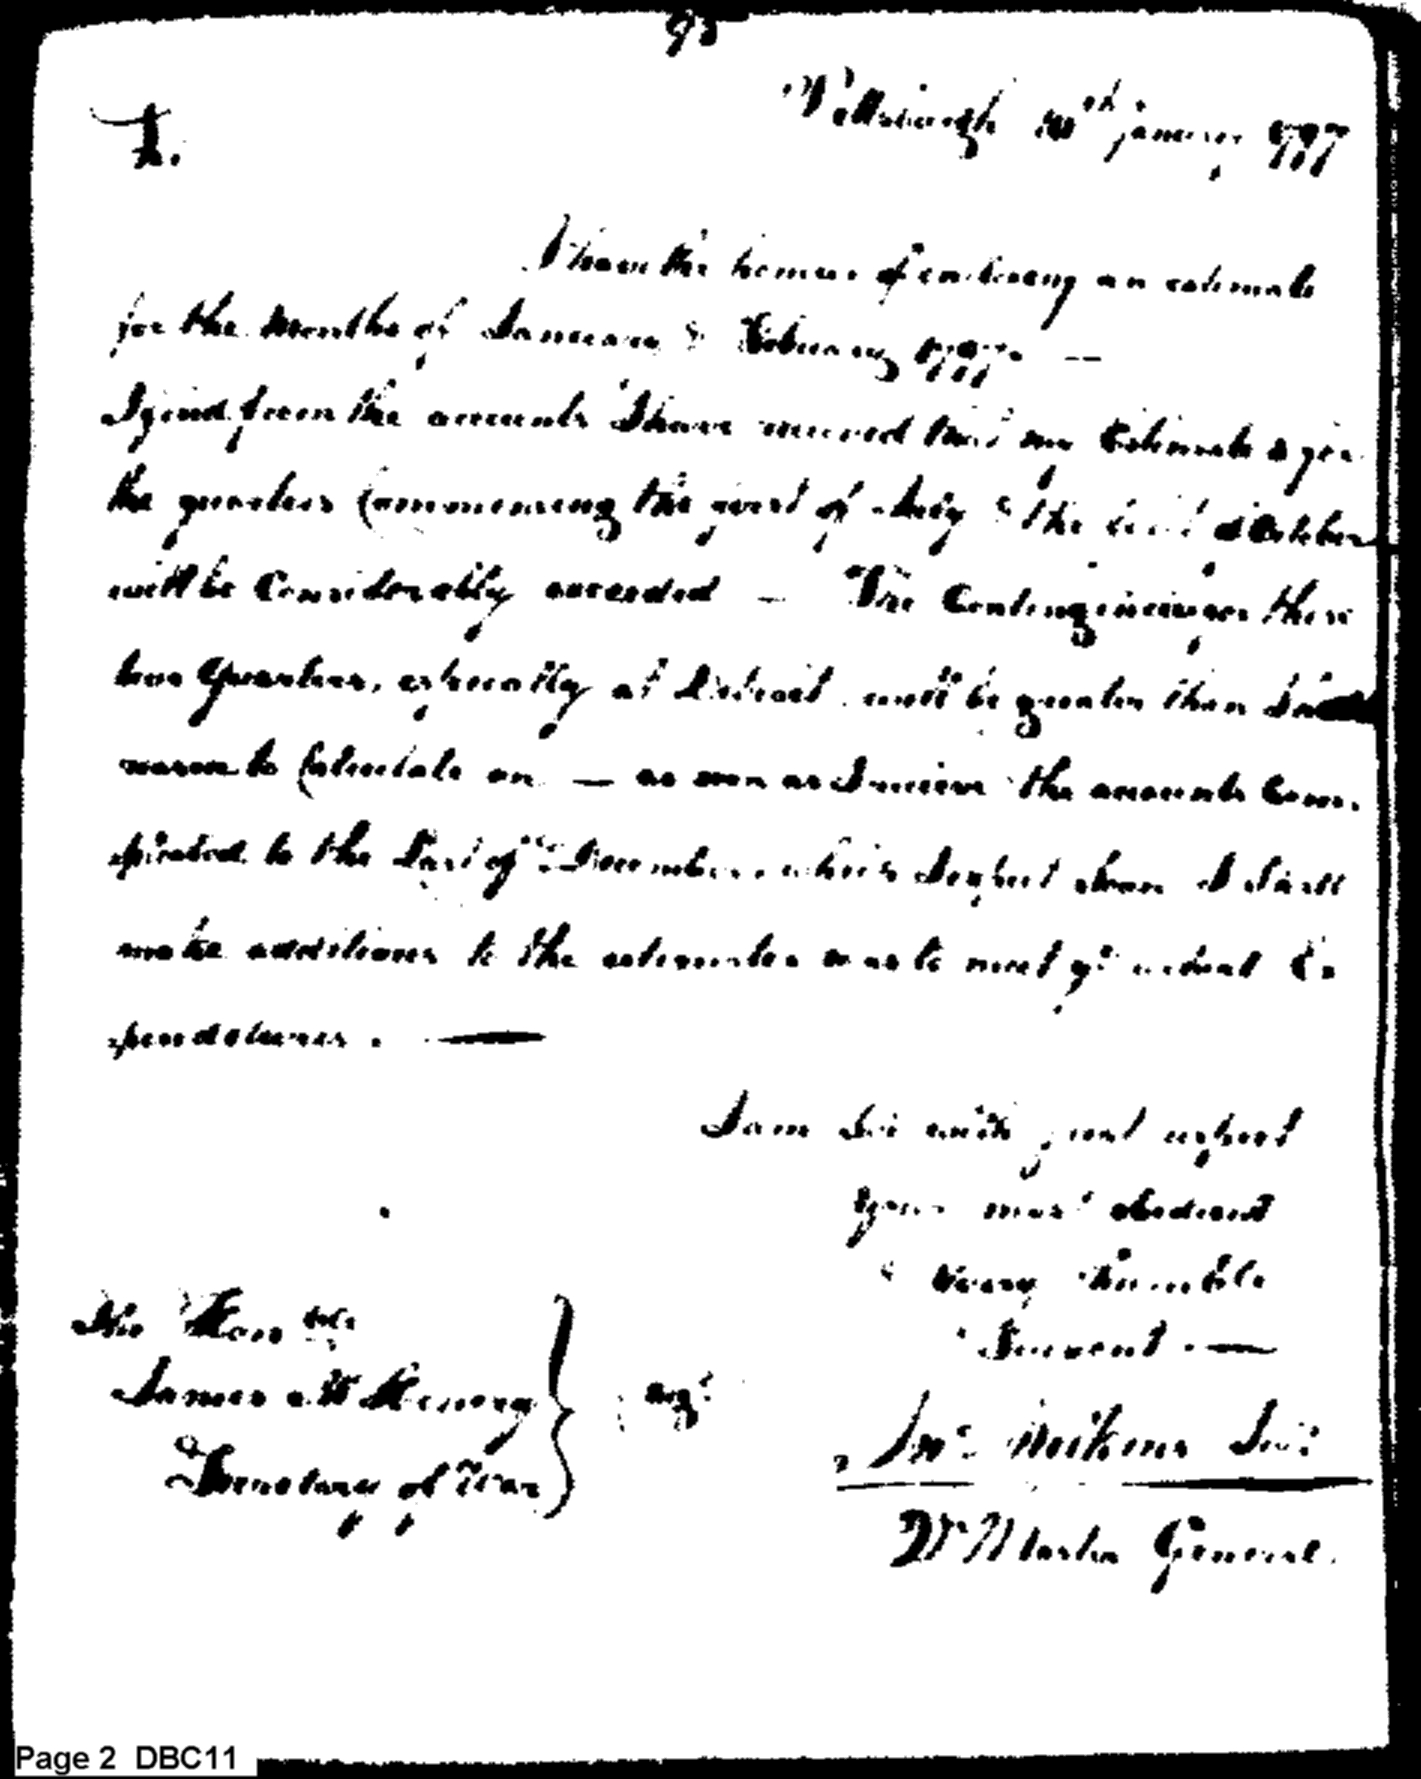 95
Pittsburgh January 1797
Sir
I have the honour of enclosing an estimate
for the Months of January & February 1797. —
I find from the accounts I have received that my Estimates for
the quarters Commencing the first of July & the first of October
will be Considerably exceeded — The Contingencies for these
two Quarters, especially at Detroit will be greater than I had
reason to Calculate on — as soon as I receive the accounts Com,
pleated to the Last of December, which I expect soon I shall
make additions to the estimates so as to meet ye actual Ex
penditures. —
I am Sir with great respect
Your most obedient
& very Humble
Servant —
The Honble
James McHenry
Secretary of War
Jno Wilkins Junr
Qr Master General.
Page 2 DBC11